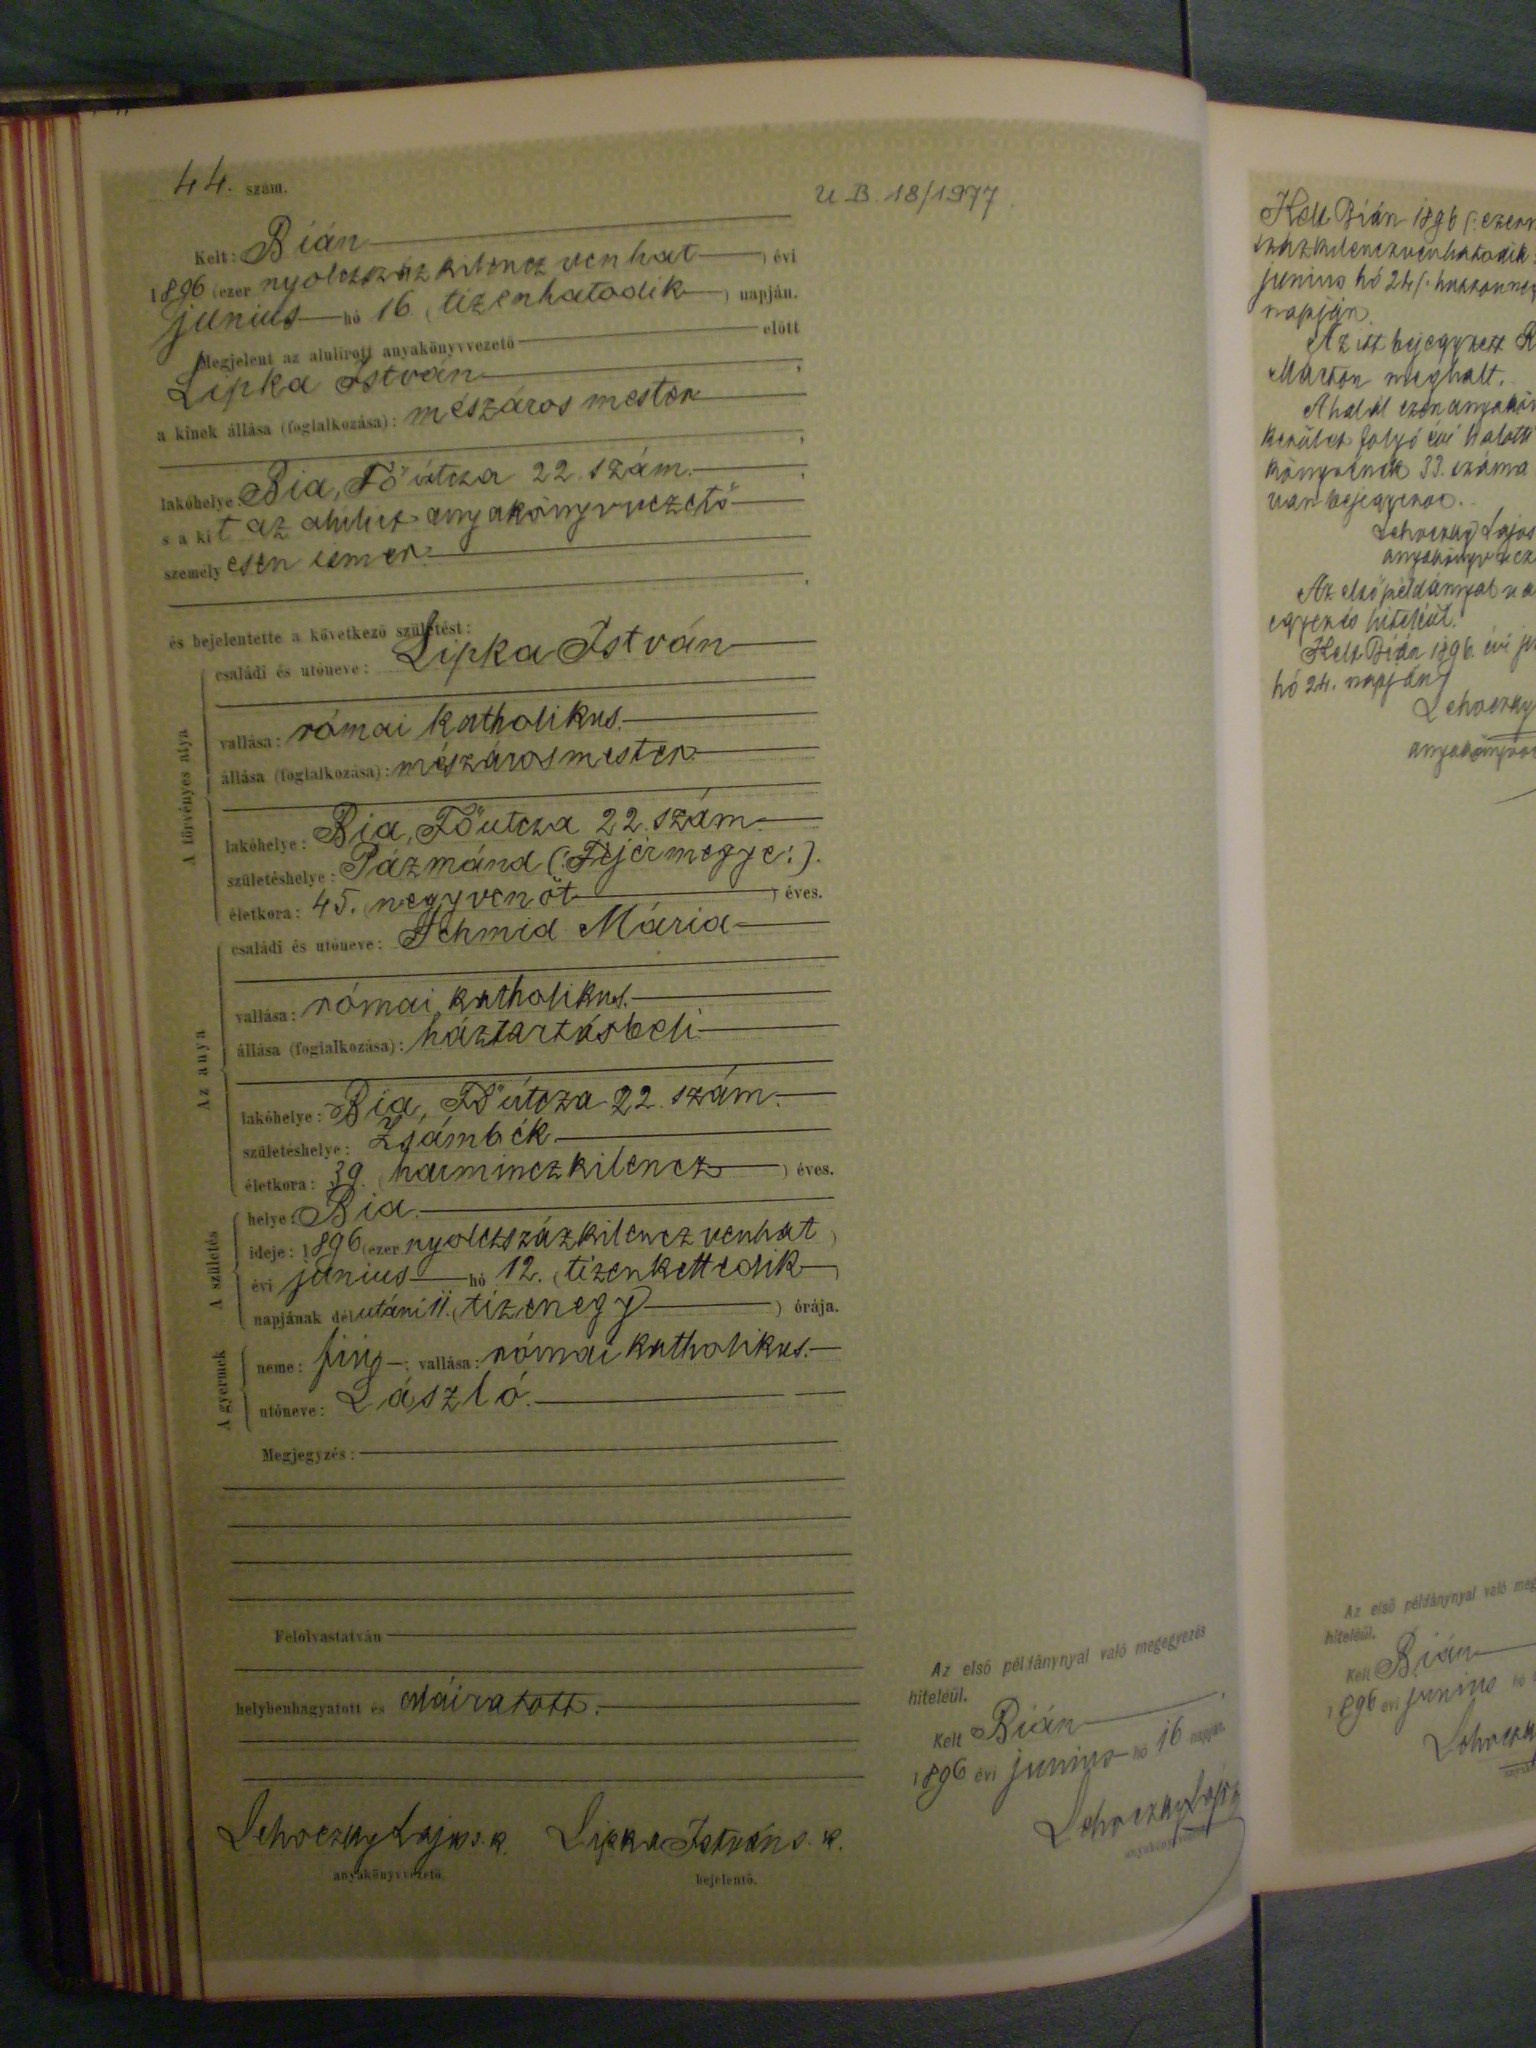 44. szám.
U B. 18/1977.
Kelt: Bián
1896 (ezer nyolczszázkilenczvenhat ) évi
junius hó 16. (tizenhatodik ) napján.
Megjelent az alulírott anyakönyvvezető előtt
Lipka István ,
a kinek állása (foglalkozása): mészáros mester
,
lakóhelye: Bia, Főútcza 22. szám. ,
s a kit az alulirt anyakönyvvezető
személyesen ismer.
,
és bejelentette a következő születést:
A törvényes atya
családi és utóneve: Lipka István
vallása: római katholikus.
állása (foglalkozása): mészárosmester
lakóhelye: Bia, Főutcza 22. szám.
születéshelye: Pázmánd (:Fejérmegye:).
életkora: 45. (negyvenöt ) éves.
Az anya
családi és utóneve: Schmid Mária
vallása: római katholikus.
állása (foglalkozása): háztartásbeli
lakóhelye: Bia, Főútcza 22. szám.
születéshelye: Zsámbék
életkora: 39. (harminczkilencz ) éves.
A születés
helye: Bia.
ideje: 1896 (ezer nyolczszázkilenczvenhat )
évi junius hó 12. (tizenkettedik )
napjának délutáni 11. (tizenegy ) órája.
A gyermek
neme: fiú ; vallása: római katholikus.
utóneve: László.
Megjegyzés:
Felolvastatván
helybenhagyatott és aláiratott.
Lehoczky Lajos s. k. Lipka István s. k.
anyakönyvvezető. bejelentő.
Az első példánynyal való megegyezés
hiteléül.
Kelt Bián ,
1896 évi junius hó 16 napján.
Lehoczky Lajos
anyakönyvvezető
Kelt Bián 1896 (:ezern
százkilenczvenhatodik:
junius hó 24 (:
napján.
Az itt bejegyzett
Márton meghalt.
A halál ezen anyakön
kerület folyó évi halotti
könyvének 33. száma
van bejegyezve.
Lehoczky Lajos
anyakönyvvez
Az első példánnyal va
egyezés hiteléül.
Kelt Bián 1896. évi ju
hó 24. napján
Lehoczky
anyakönyvv
Az első példánynyal való meg
hiteléül.
Kelt Bián
1896 évi junius hó
Lehoczky